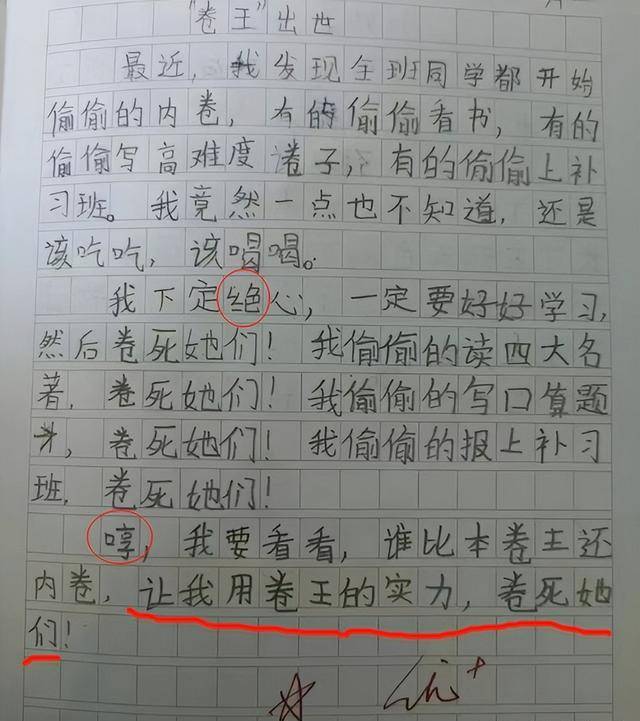 "卷王"出世
最近，我发现全班同学都开始
偷偷的内卷，有的偷偷看书，有的
偷偷写高难度卷子，有的偷偷上补
习班。我竟然一点也不知道，还是
该吃吃，该喝喝。
我下定绝心，一定要好好学习，
然后卷死她们！我偷偷的读四大名
著，卷死她们！我偷偷的写口算题
卡，卷死她们！我偷偷的报上补习
班，卷死她们！
哼，我要看看，谁比本卷王还
内卷，让我用卷王的实力，卷死她
们！
优+